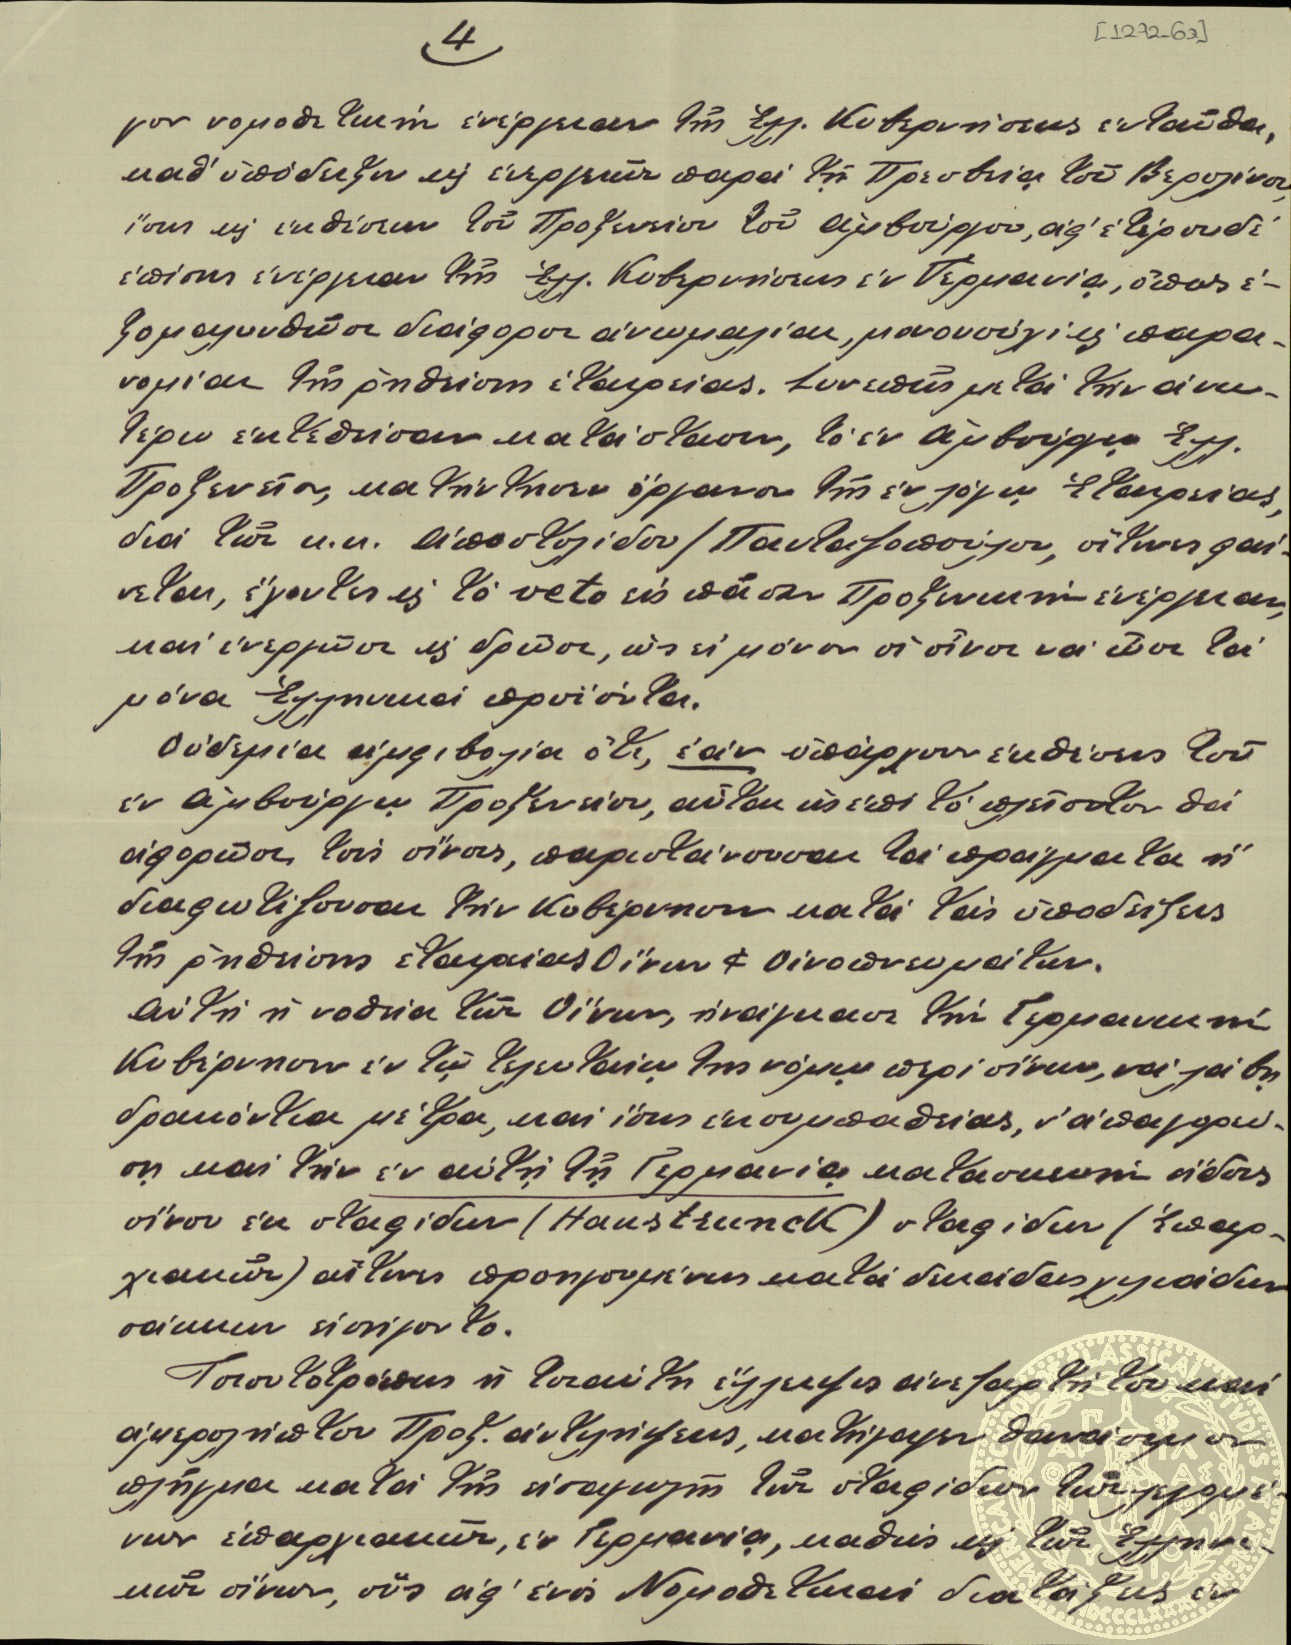 4
[1272-63]
γον νομοθετικὴν ἐνέργειαν τῆς Ἑλλ. Κυβερνήσεως ἐνταῦθα,
καθ' ὑπόδειξιν κ ἐνεργειῶν παρὰ τῇ Πρεσβείᾳ τοῦ Βερολίνου,
ἴσως κ ἐκθέσεων τοῦ Προξενείου τοῦ Ἁμβούργου, ἀφ' ἑτέρου δὲ
ἐπίσης ἐνέργειαν τῆς Ἑλλ. Κυβερνήσεως ἐν Γερμανίᾳ, ὅπως ἐ-
ξομαλυνθῶσι διάφοροι ἀνωμαλίαι, μονονουχὶ κ παρα-
νομίαι τῆς ῥηθείσης ἑταιρείας. Συνεπῶς μετὰ τὴν ἀνω-
τέρω ἐκτεθεῖσαν κατάστασιν, τὸ ἐν Ἁμβούργῳ Ἑλλ.
Προξενεῖον, κατήντησεν ὄργανον τῆς ἐν λόγῳ Ἑταιρείας,
διὰ τῶν κ.κ. Ἀποστολίδου/Πανταζοπούλου, οἵτινες φαί-
νεται, ἔχοντες κ τὸ veto εἰς πᾶσαν Προξενικὴν ἐνέργειαν,
καὶ ἐνεργῶσι κ δρῶσι, ὡς εἰ μόνον οἱ οἶνοι νὰ ὦσι τὰ
μόνα Ἑλληνικὰ προϊόντα.
Οὐδεμία ἀμφιβολία ὅτι, ἐὰν ὑπάρχουν ἐκθέσεις τοῦ
ἐν Ἁμβούργῳ Προξενείου, αὗται ὡς ἐπὶ τὸ πλεῖστον θὰ
ἀφορῶσι τοὺς οἴνους, παριστάνουσαι τὰ πράγματα ἢ
διαφωτίζουσαι τὴν Κυβέρνησιν κατὰ τὰς ὑποδείξεις
τῆς ῥηθείσης ἑταιρίας Οἴνων & Οἰνοπνευμάτων.
Αὐτὴ ἡ νοθεία τῶν Οἴνων, ἠνάγκασε τὴν Γερμανικὴν
Κυβέρνησιν ἐν τῷ τελευταίῳ της νόμῳ περὶ οἴνων, νὰ λάβῃ
δρακόντια μέτρα, καὶ ἴσως ἐκ συμπαθείας, ν' ἀπαγορεύ-
σῃ καὶ τὴν ἐν αὐτῇ τῇ Γερμανίᾳ κατασκευὴν εἴδους
οἴνου ἐκ σταφίδων (Haustrunck) σταφίδων (Ἐπαρ-
χιακῶν) αἵτινες προηγουμένως κατὰ δεκάδας χιλιάδων
σάκκων εἰσήγοντο.
Τοιουτοτρόπως ἡ τοιαύτη ἔλλειψις ἀνεξαρτήτου καὶ
ἀμερολήπτου Προξ. ἀντιλήψεως, κατήγαγεν θανάσιμον
πλῆγμα κατὰ τῆς εἰσαγωγῆς τῶν σταφίδων τῶν λεγομέ-
νων ἐπαρχιακῶν, ἐν Γερμανίᾳ, καθὼς κ τῶν Ἑλληνι-
κῶν οἴνων, οὓς ἀφ' ἑνὸς Νομοθετικαὶ διατάξεις ἐν